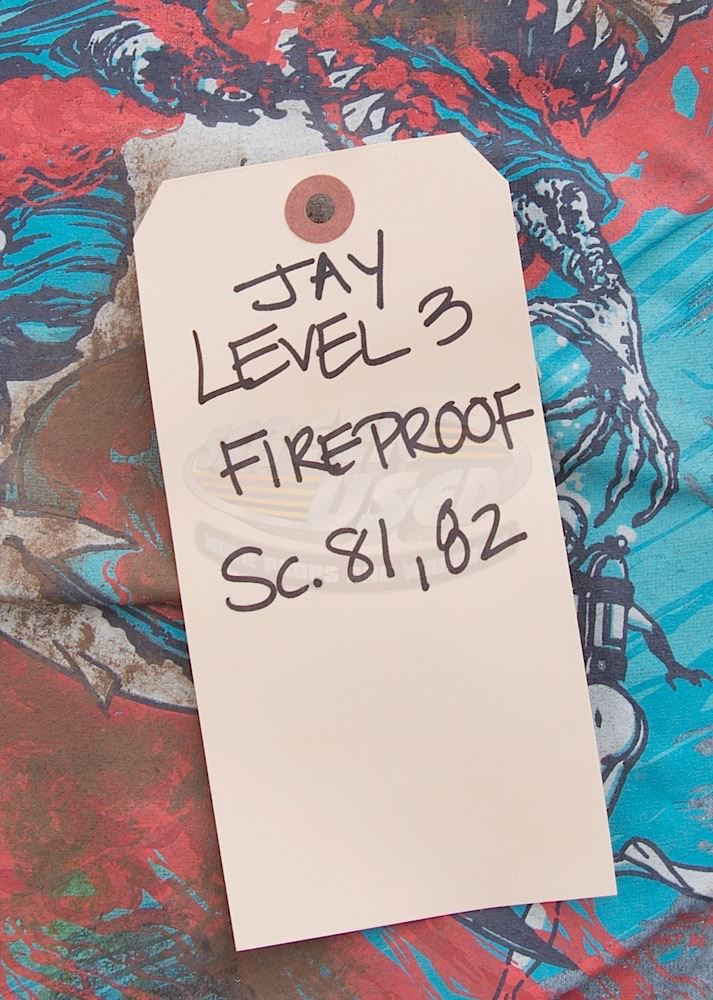 JAY
LEVEL 3
FIREPROOF
SC. 81, 82
USED